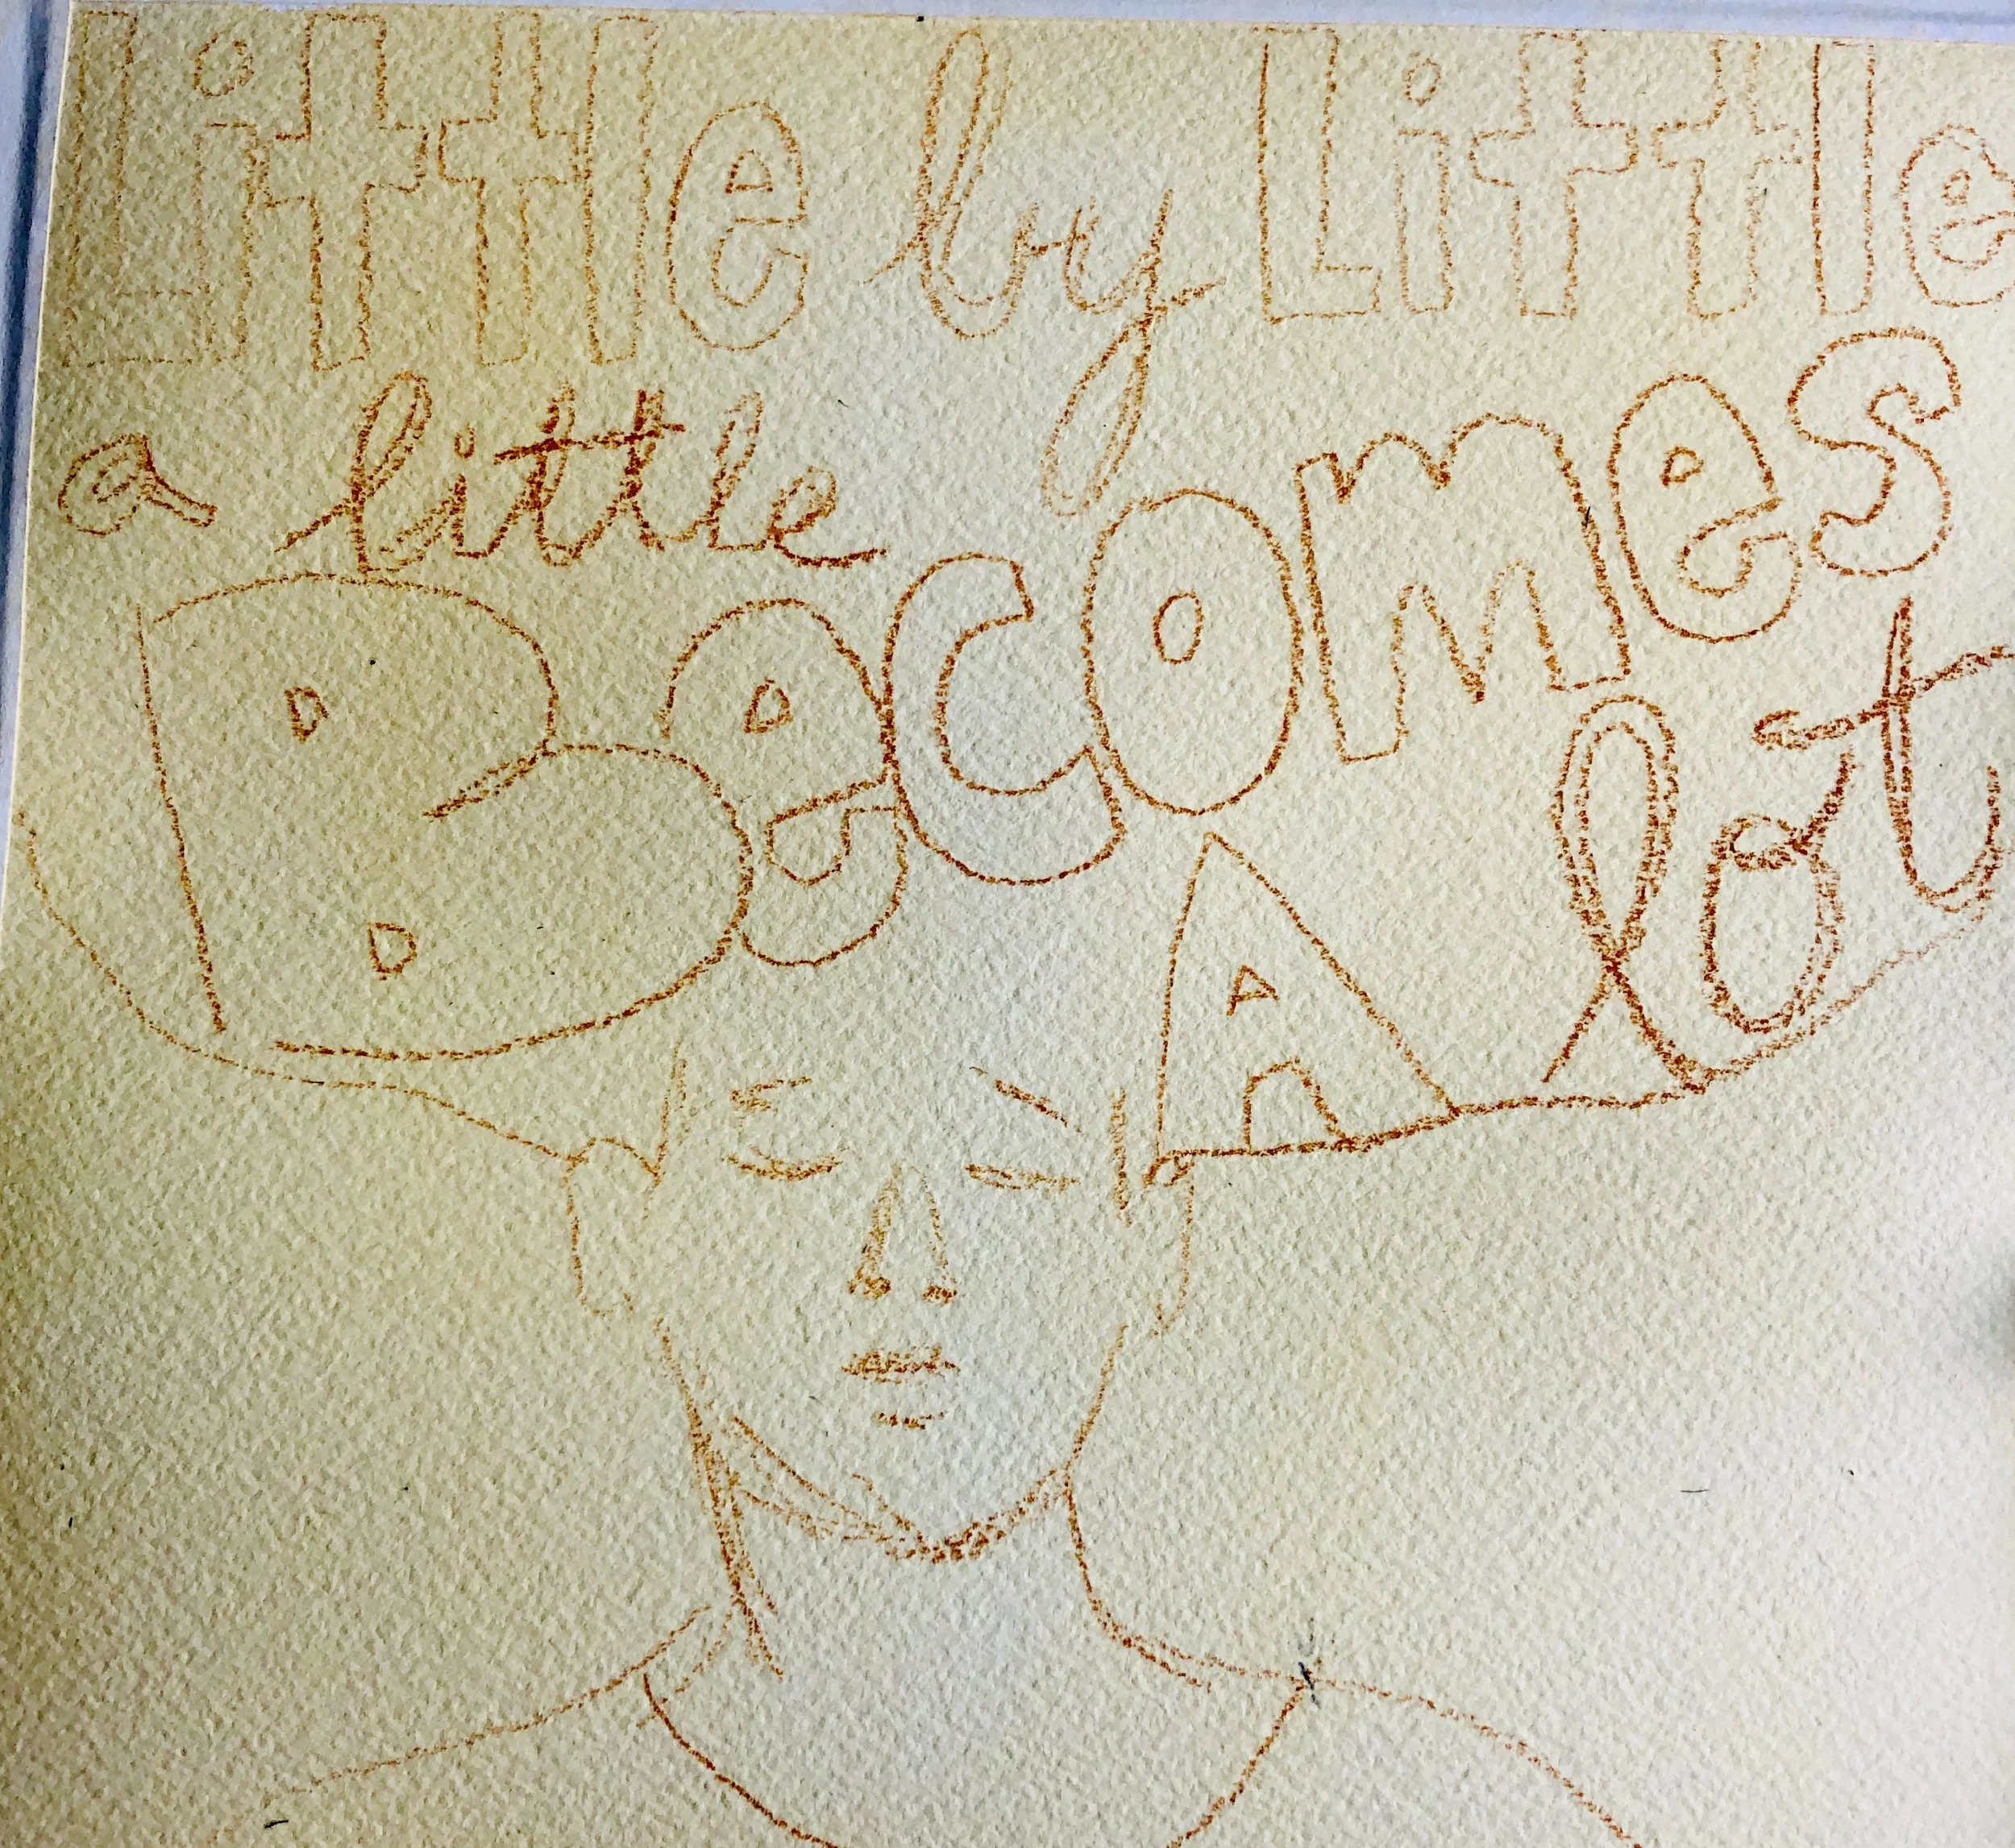 Little by Little
a little
Becomes
A lot